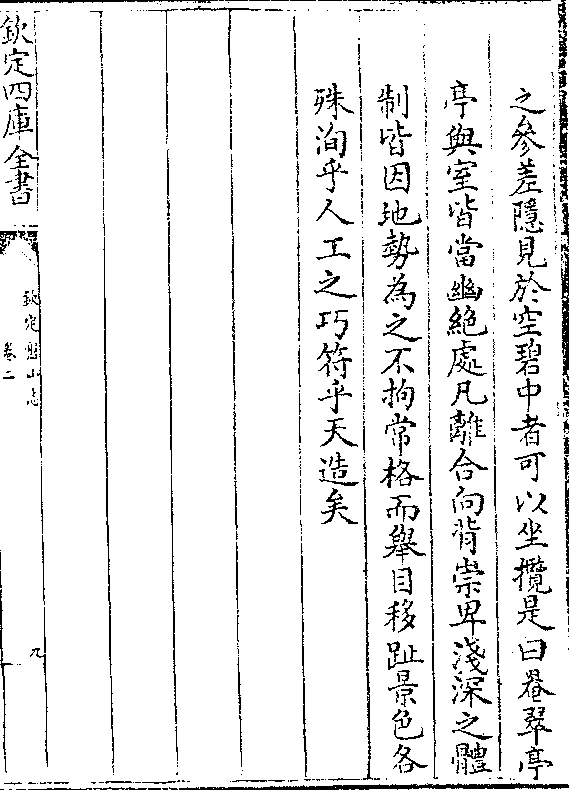 之參差隱見於空碧中者可以坐攬是曰罨翠亭
亭與室皆當幽絶處凡離合向背崇卑淺深之體
制皆因地勢為之不拘常格而舉目移趾景色各
殊洵乎人工之巧符乎天造矣
欽定四庫全書
欽定盤山志
卷二
九